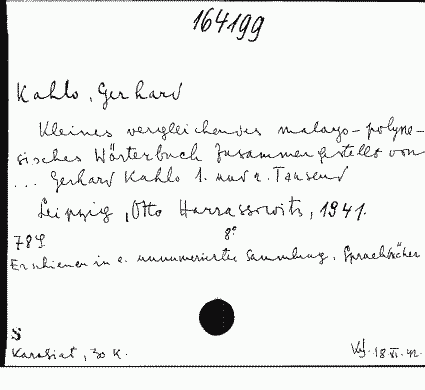 164199
Kahlo, Gerhard
Kleines vergleichendes malayo-polyne-
sisches Wörterbuch zusammengestellt von
... Gerhard Kahlo 1. und 2. Tausend
Leipzig, Otto Harrassowitz, 1941.
78 S. 8°
Erschienen in e. unnumerierte Sammlung. Sprachbücher
S
30 K.
18 XI. 42.